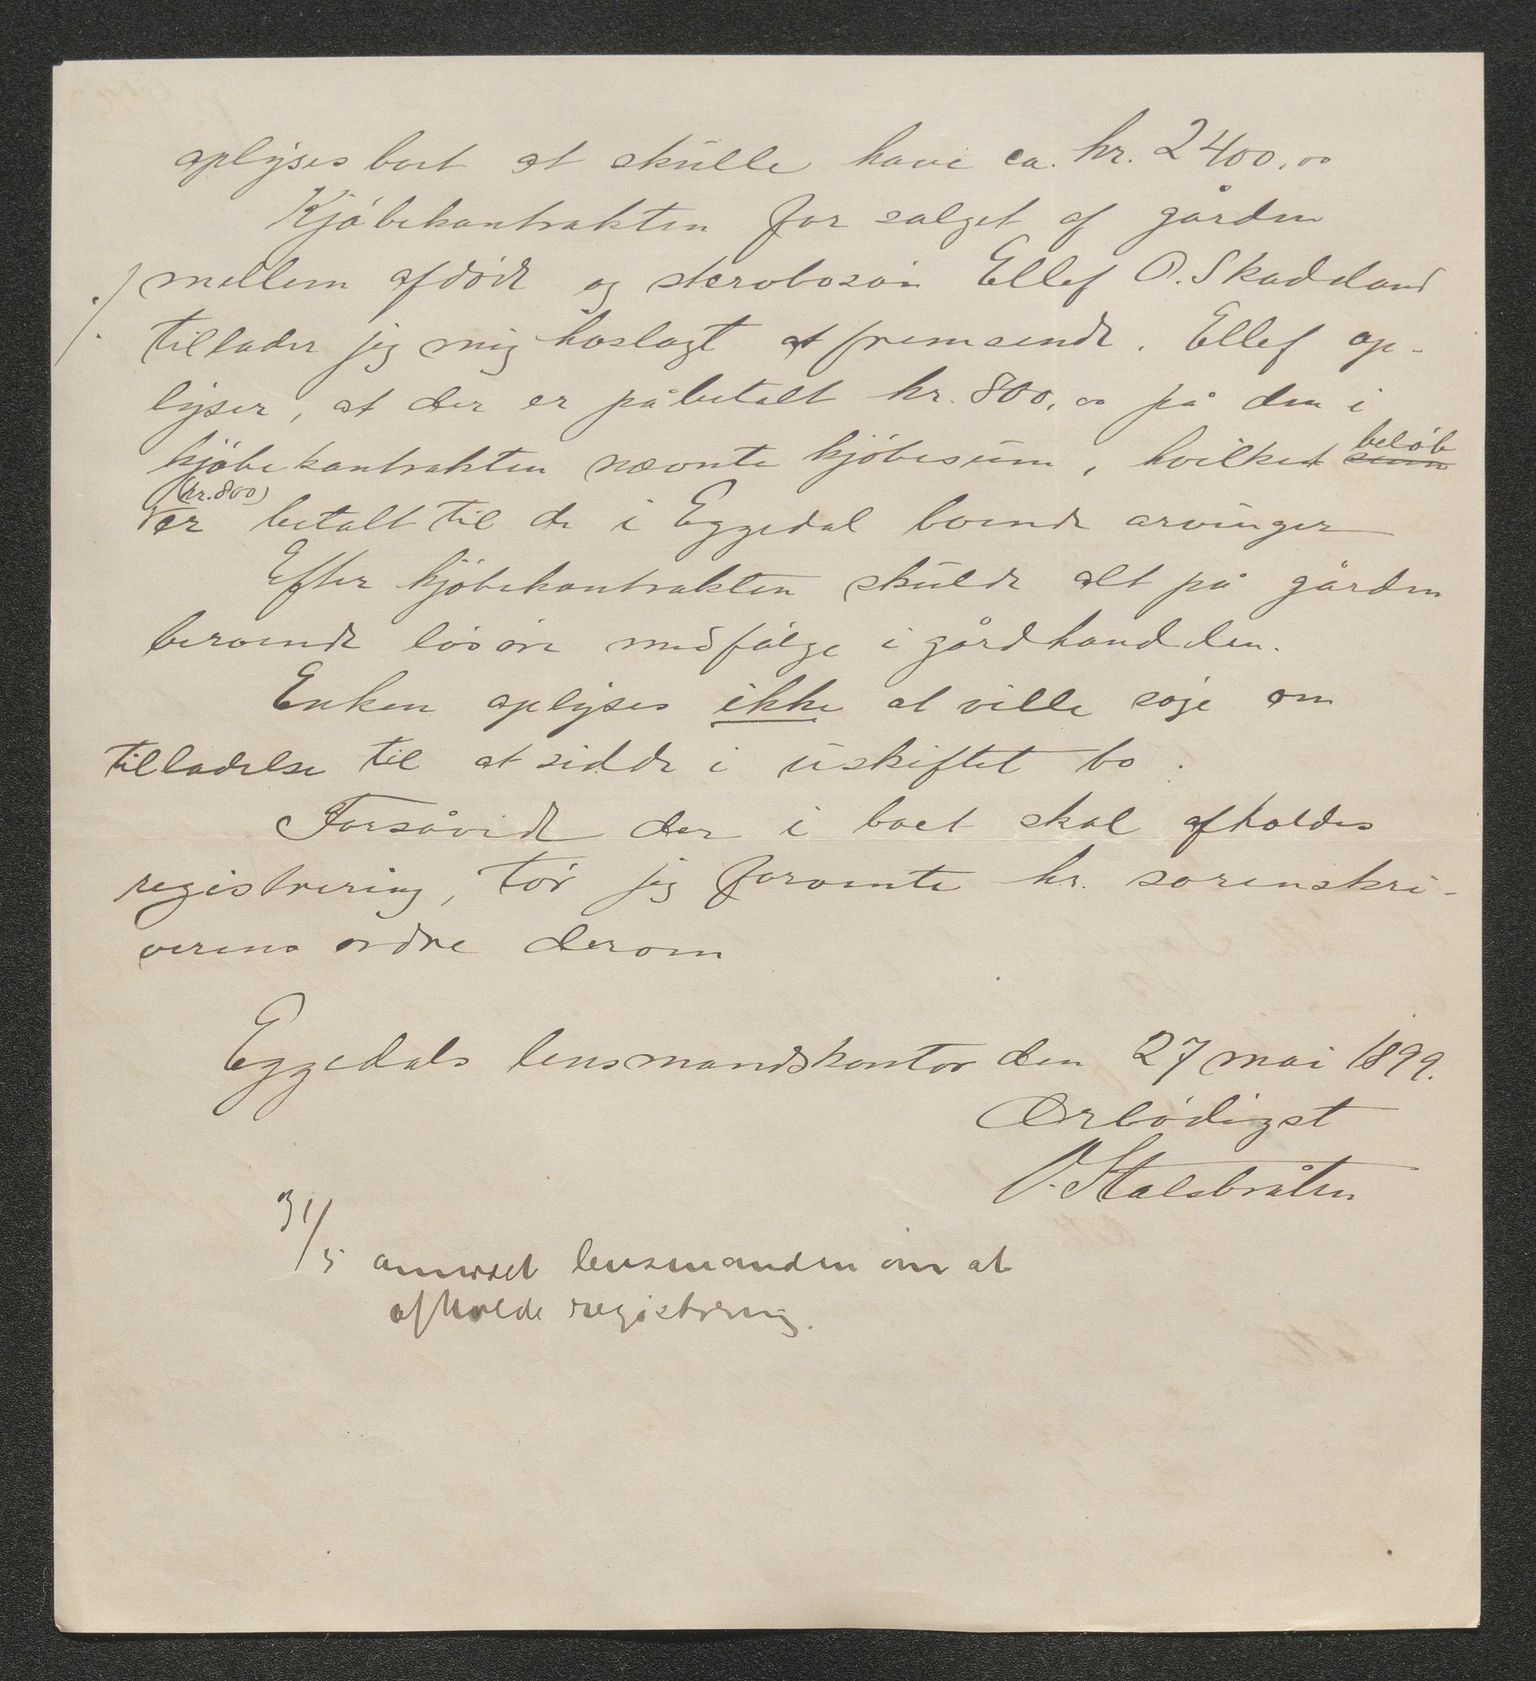 oplyses boet at skulle have ca. kr. 2400,00
Kjöbekontrakten for salget af gården
./. mellem afdöde og stervbosön Ellef O. Skadeland
tillader jeg mig hoslagt at fremsende. Ellef op-
lyser, at der er påbetalt kr. 800,00 på den i
kjöbekontrakten nævnte kjöbesum, hvilket sum beløb
(kr. 800)
er betalt til de i Eggedal boende arvinger
Efter kjöbekontrakten skulde alt på gården
beroende lösöre medfölge i gårdhandelen.
Enken oplyses ikke at ville söge om
tilladelse til at sidde i uskiftet bo.
Forsåvidt der i boet skal afholdes
registrering, tör jeg forvente hr. sorenskri-
verens ordre derom
Eggedals lensmandskontor den 27 mai 1899.
Ærbödigst
O. Stalsbråten
31/5 anmodet lensmanden om at
afholde registrering.